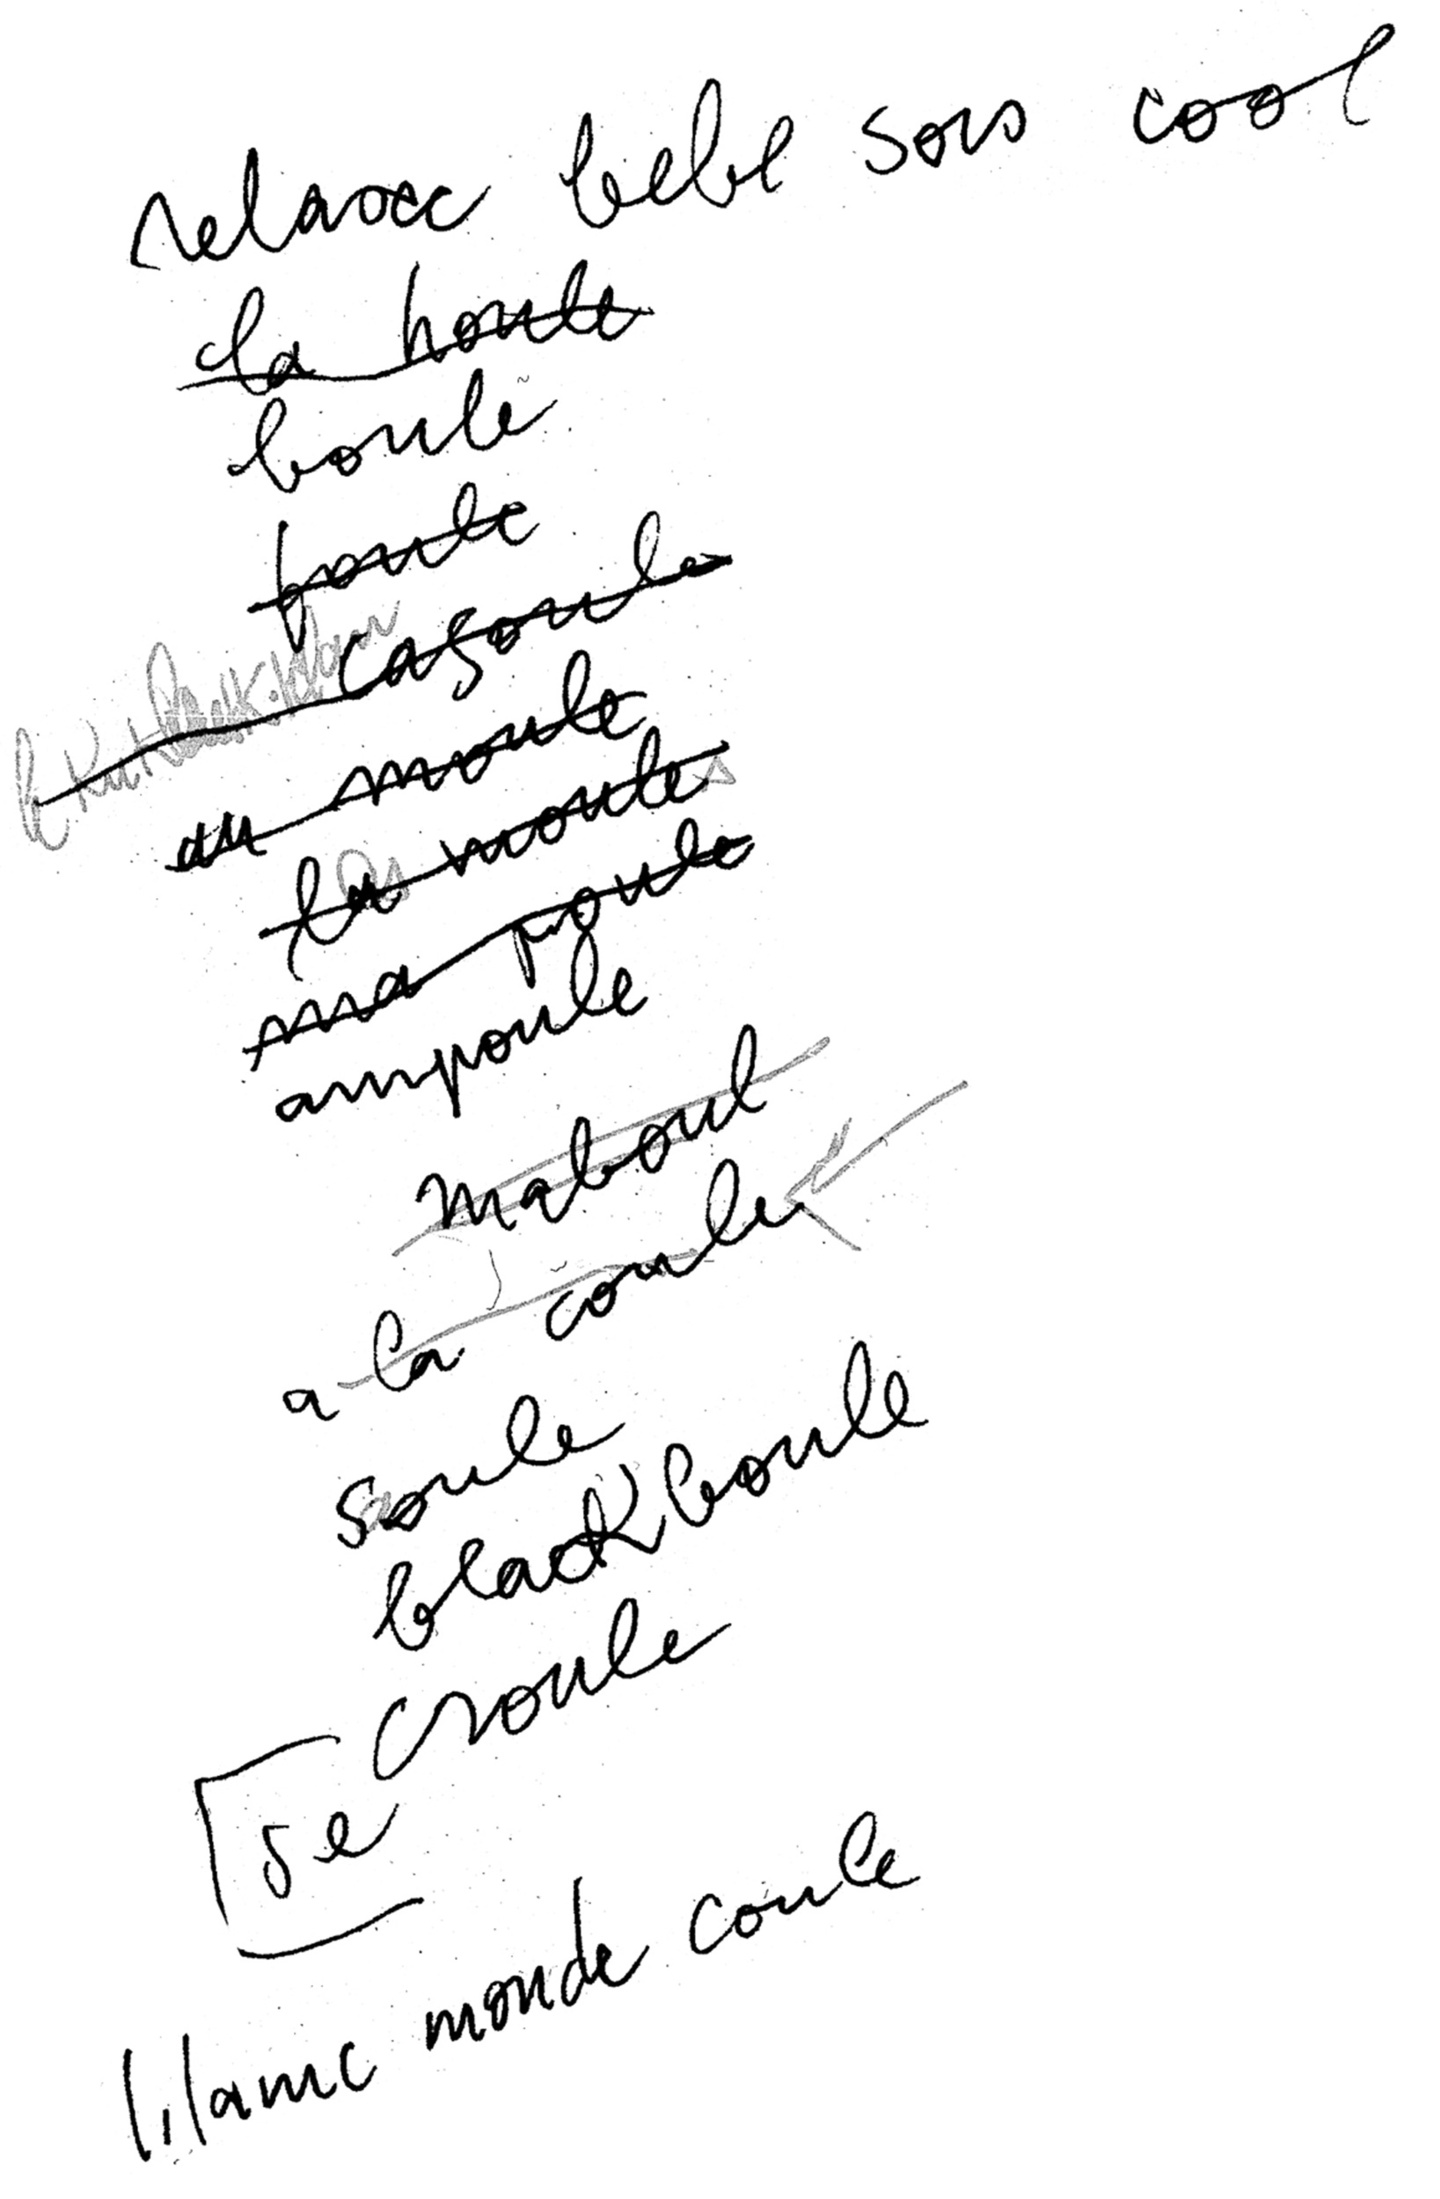 relaxe bebe sois cool
la houle
boule
foule
cagoule
le Ku Klux Klan
au moule
la moule
ma poule
ampoule
maboul
a la coule
soule
blackboule
croule
se
monde coule